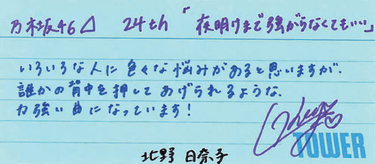 乃木坂46△ 24th「夜明けまで強がらなくてもいい」
いろいろな人に色々な悩みがあると思いますが、
誰かの背中を押してあげられるような、
力強い曲になっています！
TOWER
北野 日奈子